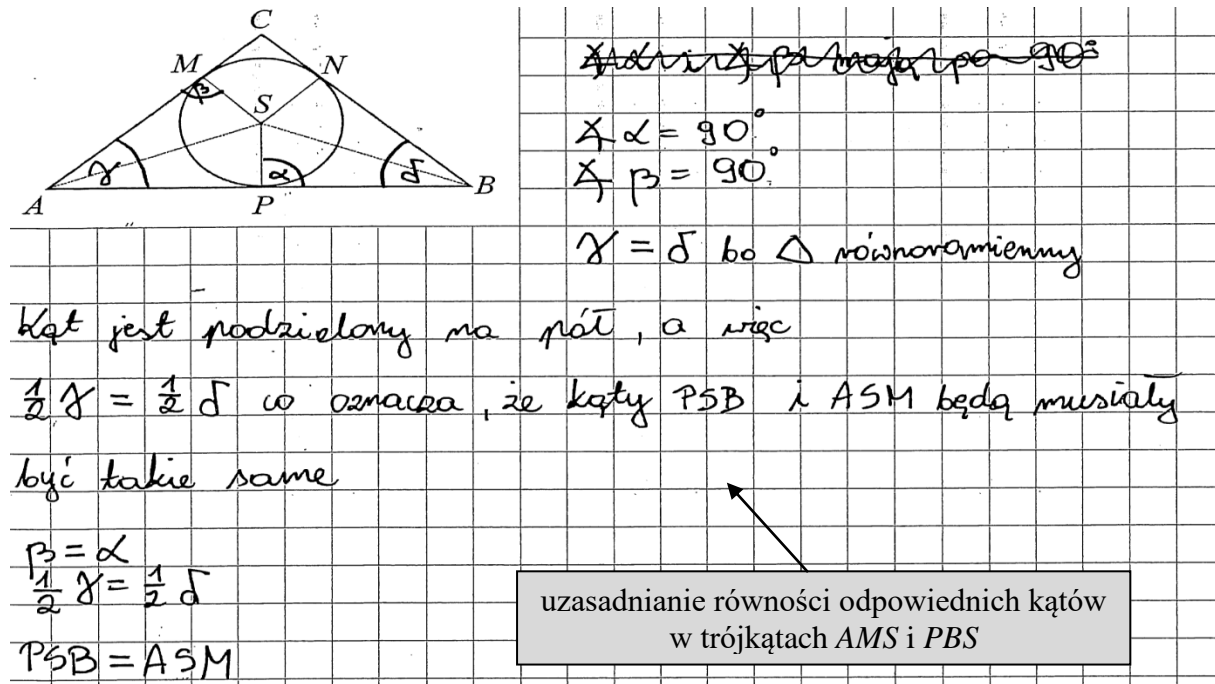 C
M N
β
S
γ α δ
A P B
∢α i ∢β mają po 90°
∢ α = 90°
∢ β = 90°
γ = δ bo △ równoramienny
Kąt jest podzielony na pół, a więc
½ γ = ½ δ co oznacza, że kąty PSB i ASM będą musiały
być takie same
β = α
½ γ = ½ δ
PSB = ASM
uzasadnianie równości odpowiednich kątów
w trójkątach AMS i PBS